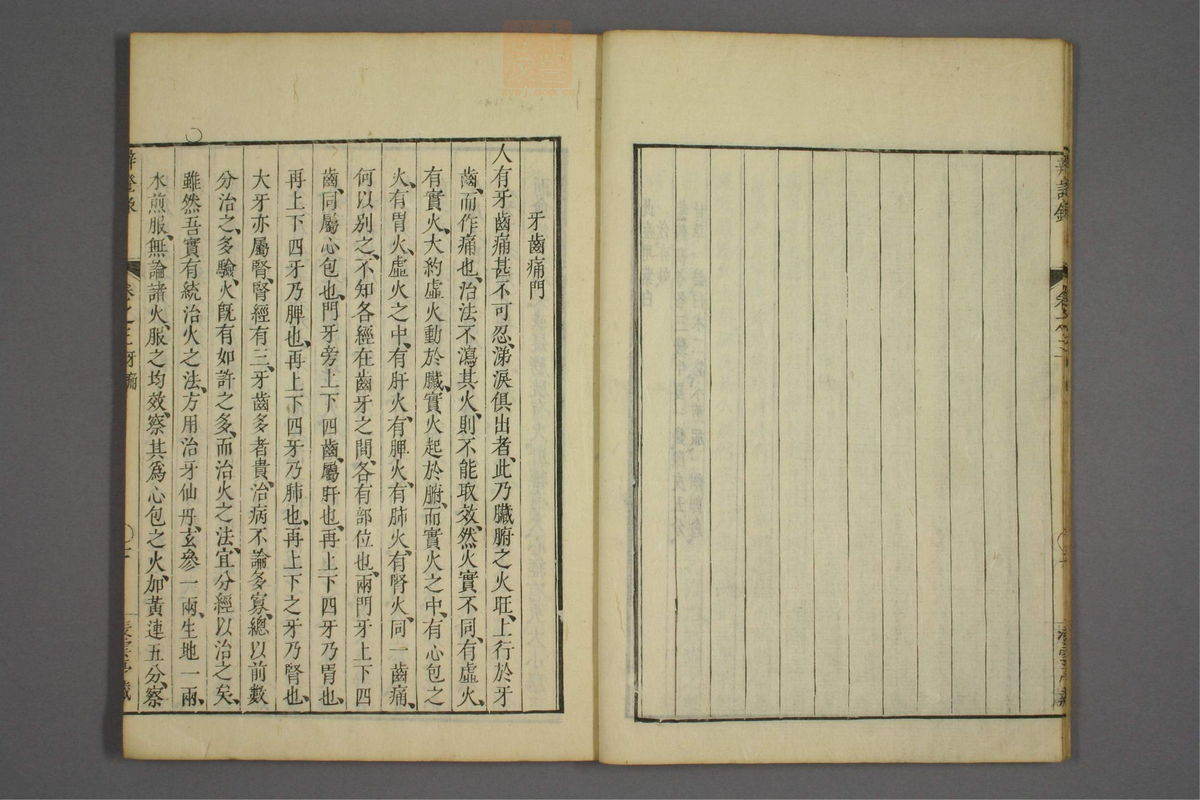 辯證錄
卷之
牙齒痛門
人有牙齒痛甚不可忍、涕淚俱出者、此乃臟腑之火旺、上行於牙
齒、而作痛也、治法不瀉其火、則不能取效、然火實不同、有虛火、
有實火、大約虛火動於臟、實火起於腑、而實火之中、有心包之
火、有胃火、虛火之中、有肝火、有脾火、有肺火、有腎火、同一齒痛、
何以別之、不知各經在齒牙之間、各有部位也、兩門牙上下四
齒、同屬心包也、門牙旁上下四齒、屬肝也、再上下四牙乃胃也、
再上下四牙乃脾也、再上下四牙乃肺也、再上下之牙乃腎也、
大牙亦屬腎、腎經有三、牙齒多者貴、治病不論多寡、總以前數
分治之、多驗、火旣有如許之多、而治火之法、宜分經以治之矣、
雖然吾實有統治火之法、方用治牙仙丹、玄參一兩、生地一兩、
水煎服、無論諸火、服之均效、察其爲心包之火、加黃連五分、察
卷之三牙痛